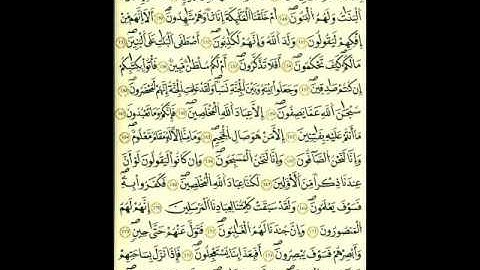 ٱلْبَنَاتُ وَلَهُمُ ٱلْبَنُونَ أَمْ خَلَقْنَا ٱلْمَلَٰٓئِكَةَ إِنَٰثًا وَهُمْ شَٰهِدُونَ أَلَآ إِنَّهُم مِّنْ
إِفْكِهِمْ لَيَقُولُونَ وَلَدَ ٱللَّهُ وَإِنَّهُمْ لَكَٰذِبُونَ أَصْطَفَى ٱلْبَنَاتِ عَلَى ٱلْبَنِينَ
مَا لَكُمْ كَيْفَ تَحْكُمُونَ أَفَلَا تَذَكَّرُونَ أَمْ لَكُمْ سُلْطَٰنٌ مُّبِينٌ فَأْتُوا۟ بِكِتَٰبِكُمْ
إِن كُنتُمْ صَٰدِقِينَ وَجَعَلُوا۟ بَيْنَهُۥ وَبَيْنَ ٱلْجِنَّةِ نَسَبًا وَلَقَدْ عَلِمَتِ ٱلْجِنَّةُ إِنَّهُمْ لَمُحْضَرُونَ
سُبْحَٰنَ ٱللَّهِ عَمَّا يَصِفُونَ إِلَّا عِبَادَ ٱللَّهِ ٱلْمُخْلَصِينَ فَإِنَّكُمْ وَمَا تَعْبُدُونَ
مَآ أَنتُمْ عَلَيْهِ بِفَٰتِنِينَ إِلَّا مَنْ هُوَ صَالِ ٱلْجَحِيمِ وَمَا مِنَّآ إِلَّا لَهُۥ مَقَامٌ مَّعْلُومٌ
وَإِنَّا لَنَحْنُ ٱلصَّآفُّونَ وَإِنَّا لَنَحْنُ ٱلْمُسَبِّحُونَ وَإِن كَانُوا۟ لَيَقُولُونَ لَوْ أَنَّ
عِندَنَا ذِكْرًا مِّنَ ٱلْأَوَّلِينَ لَكُنَّا عِبَادَ ٱللَّهِ ٱلْمُخْلَصِينَ فَكَفَرُوا۟ بِهِۦ
فَسَوْفَ يَعْلَمُونَ وَلَقَدْ سَبَقَتْ كَلِمَتُنَا لِعِبَادِنَا ٱلْمُرْسَلِينَ إِنَّهُمْ لَهُمُ
ٱلْمَنصُورُونَ وَإِنَّ جُندَنَا لَهُمُ ٱلْغَٰلِبُونَ فَتَوَلَّ عَنْهُمْ حَتَّىٰ حِينٍ
وَأَبْصِرْهُمْ فَسَوْفَ يُبْصِرُونَ أَفَبِعَذَابِنَا يَسْتَعْجِلُونَ فَإِذَا نَزَلَ بِسَاحَتِهِمْ